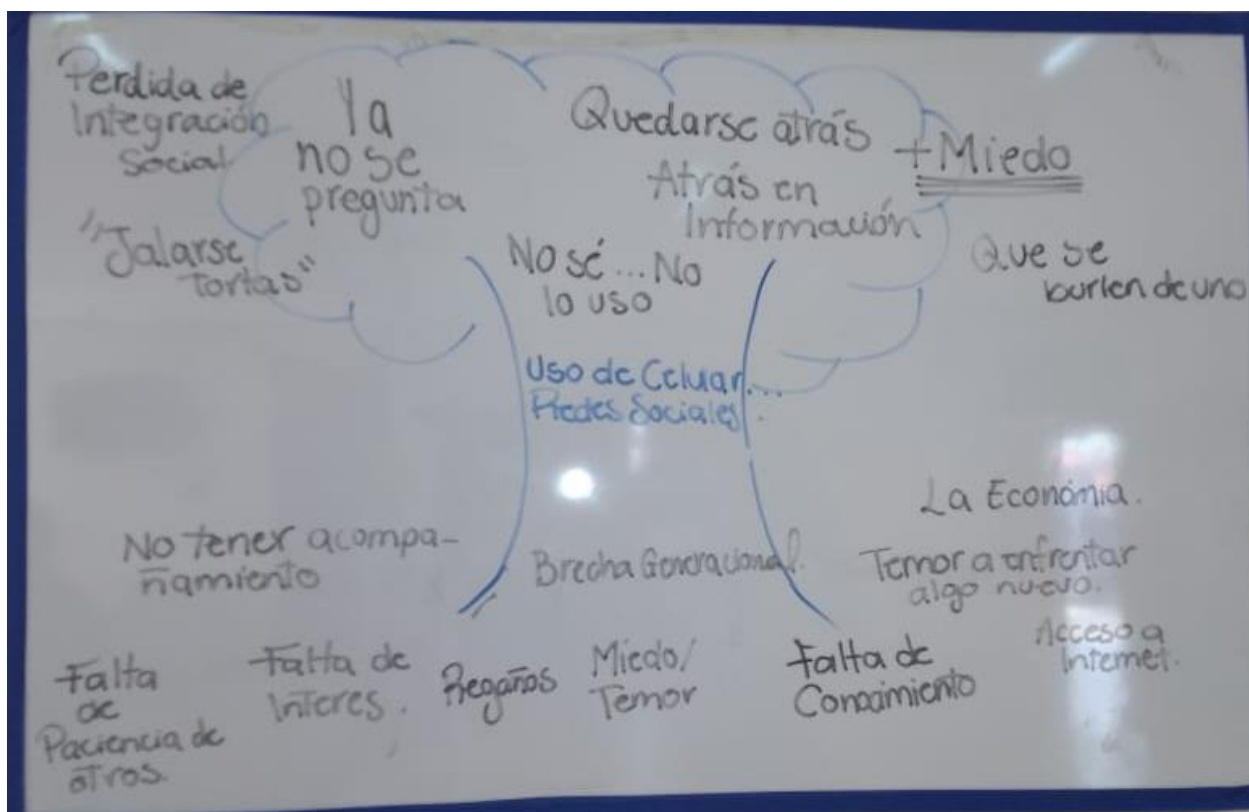 Perdida de
Integración
Social
Ya
no se
pregunta
Quedarse atrás
Atrás en
Información
+Miedo
"Jalarse
tortas"
No sé...No
lo uso
Que se
burlen de uno
Uso de Celuar...
Redes Sociales.
La Económia.
No tener acompa-
ñamiento
Brecha Generacional.
Temor a enfrentar
algo nuevo.
Acceso a
Internet.
Falta
de
Paciencia de
otros.
Falta de
Interes.
Regaños
Miedo/
Temor
Falta de
Conocimiento